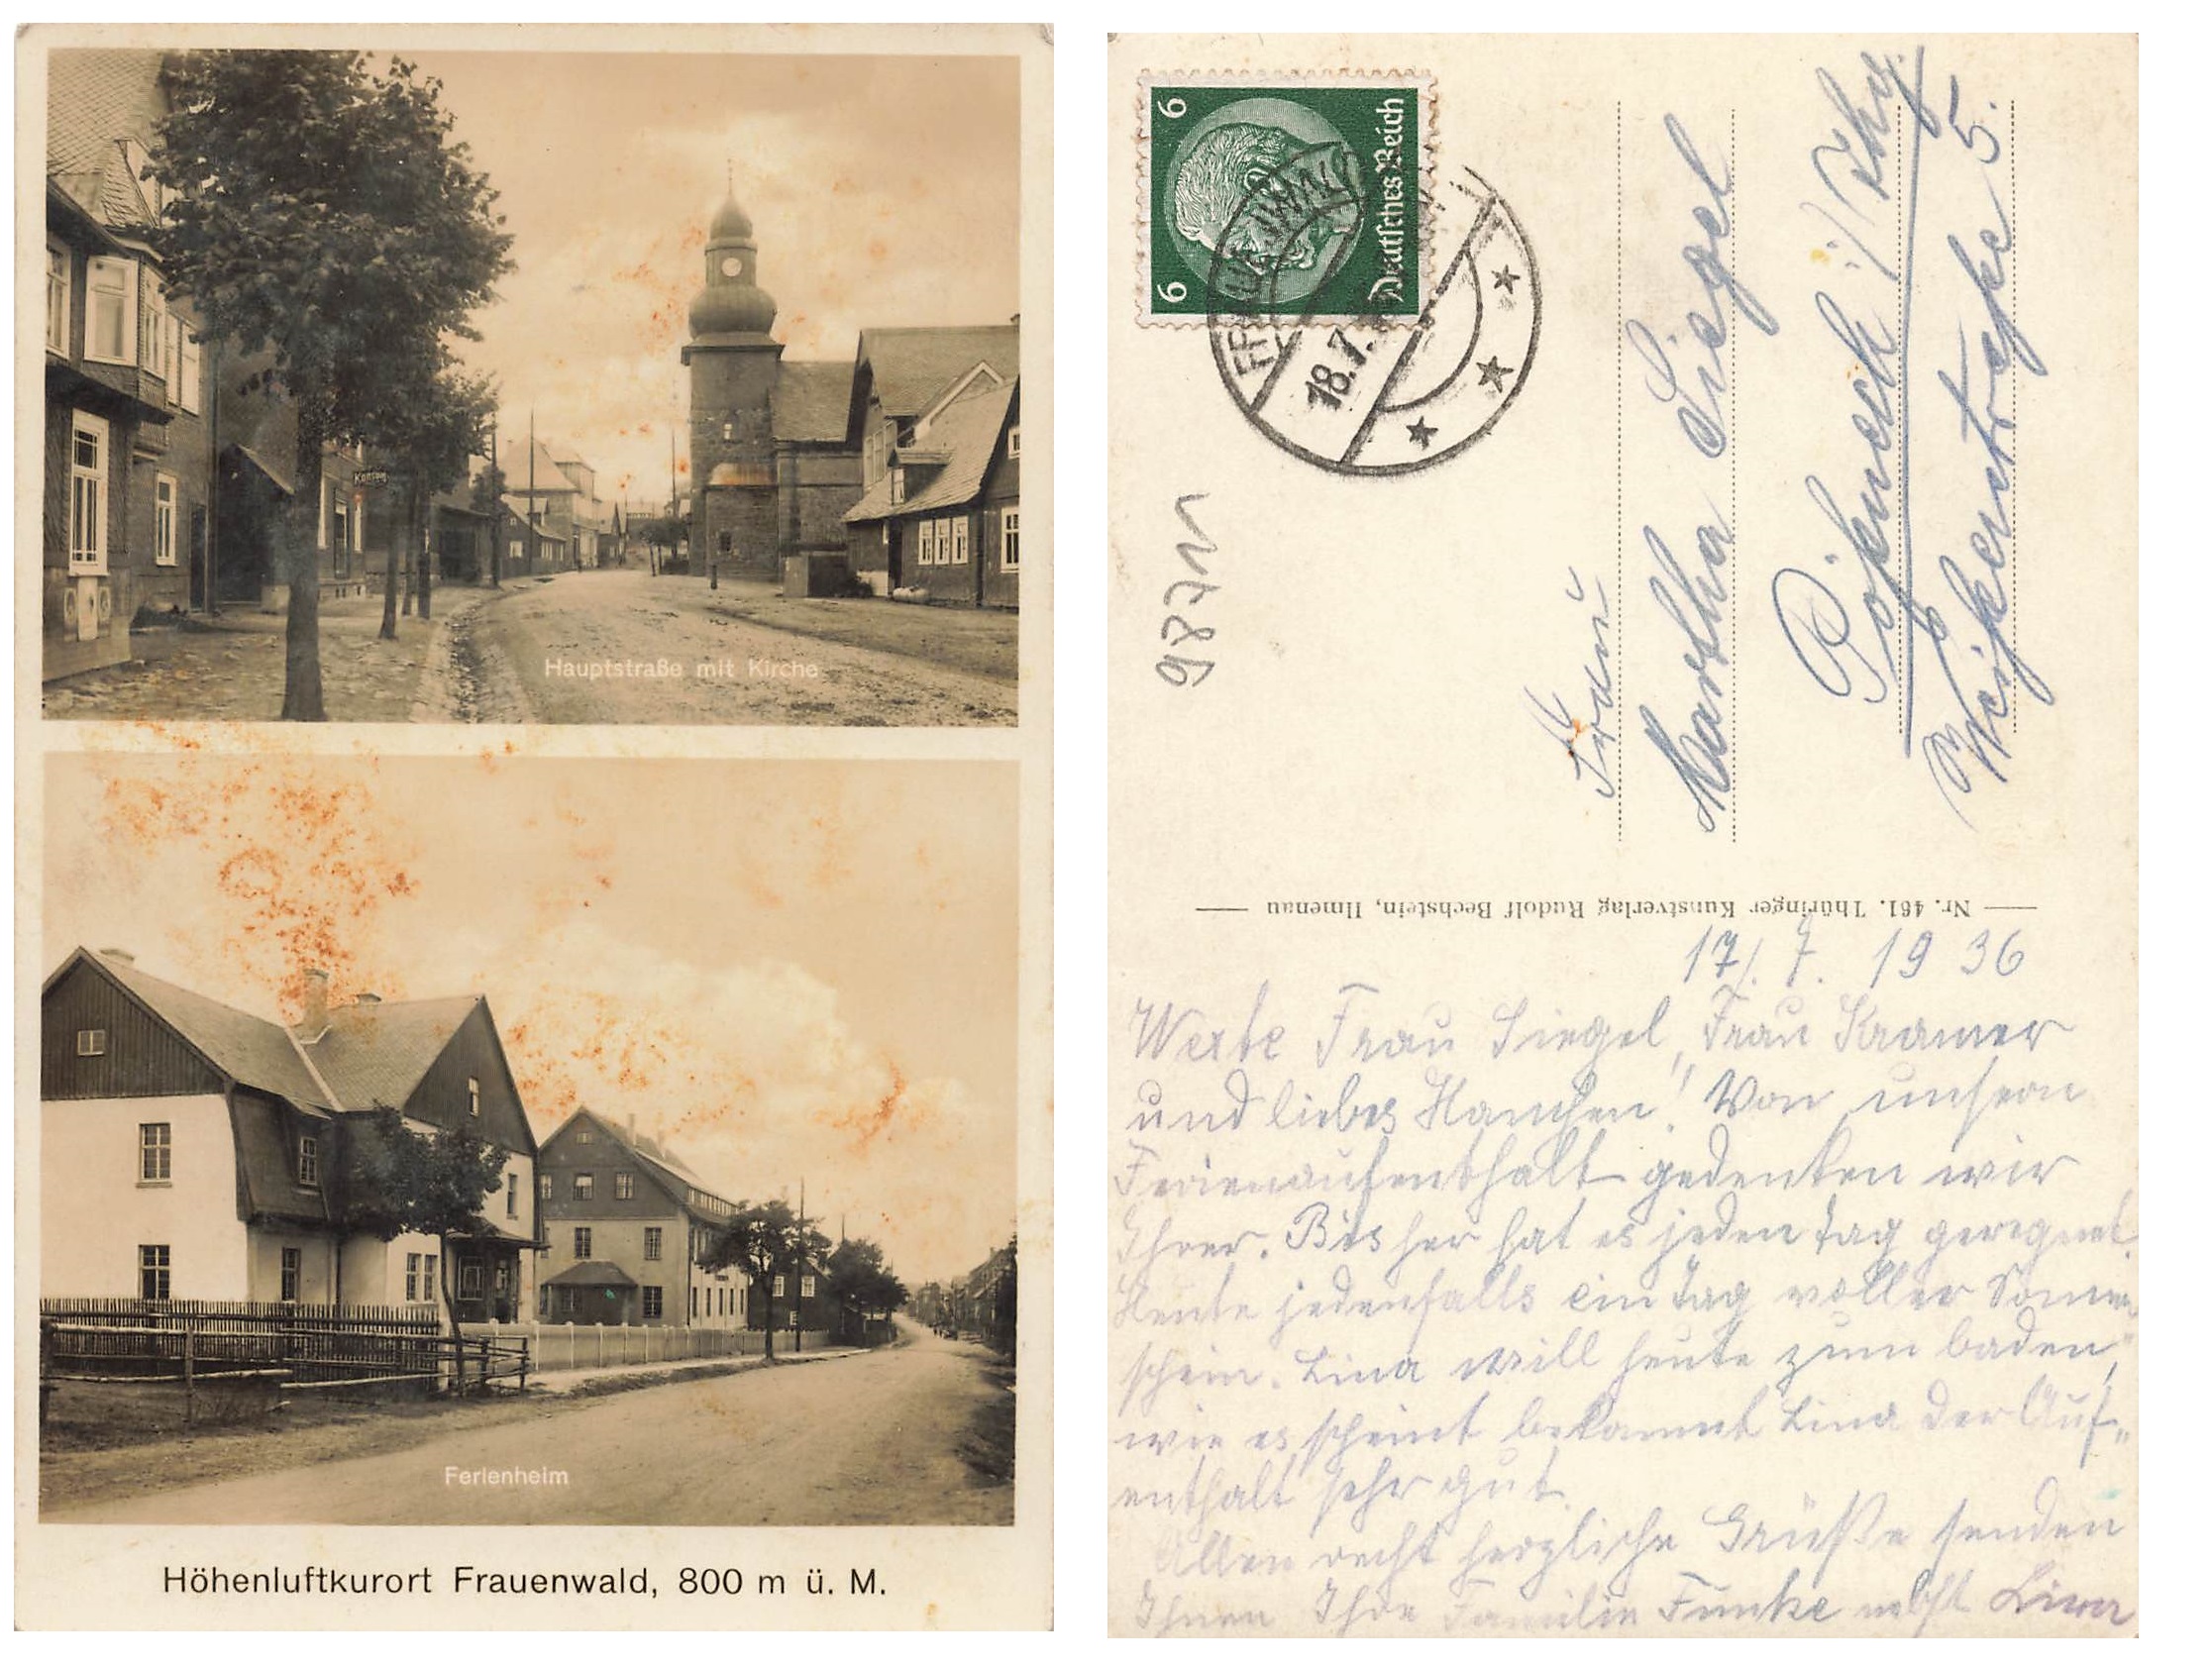 Konsum
Hauptstraße mit Kirche
Ferienheim
Höhenluftkurort Frauenwald, 800 m ü. M.
6 6
Deutsches Reich
FRAUENWALD
18.7.
Frau
Martha Siegel
Pößneck i/Thg.
Weiße
5.
Nr. 461. Thüringer Kunstverlag Rudolf Bechstein, Ilmenau
17/. 7. 1936
Werte Frau Siegel, Frau Kramer
und liebes Hanchen! Von unsern
Ferienaufenthalt gedenken wir
Ihrer. Bisher hat es jeden Tag geregnet.
Heute jedenfalls ein Tag voller Sonnen
schein. Lina will heute zum baden,
wie es scheint bekommt Lina der Auf„
enthalt sehr gut.
Allen recht herzliche Grüße senden
Ihnen Ihre Familie Funke nebst Lina